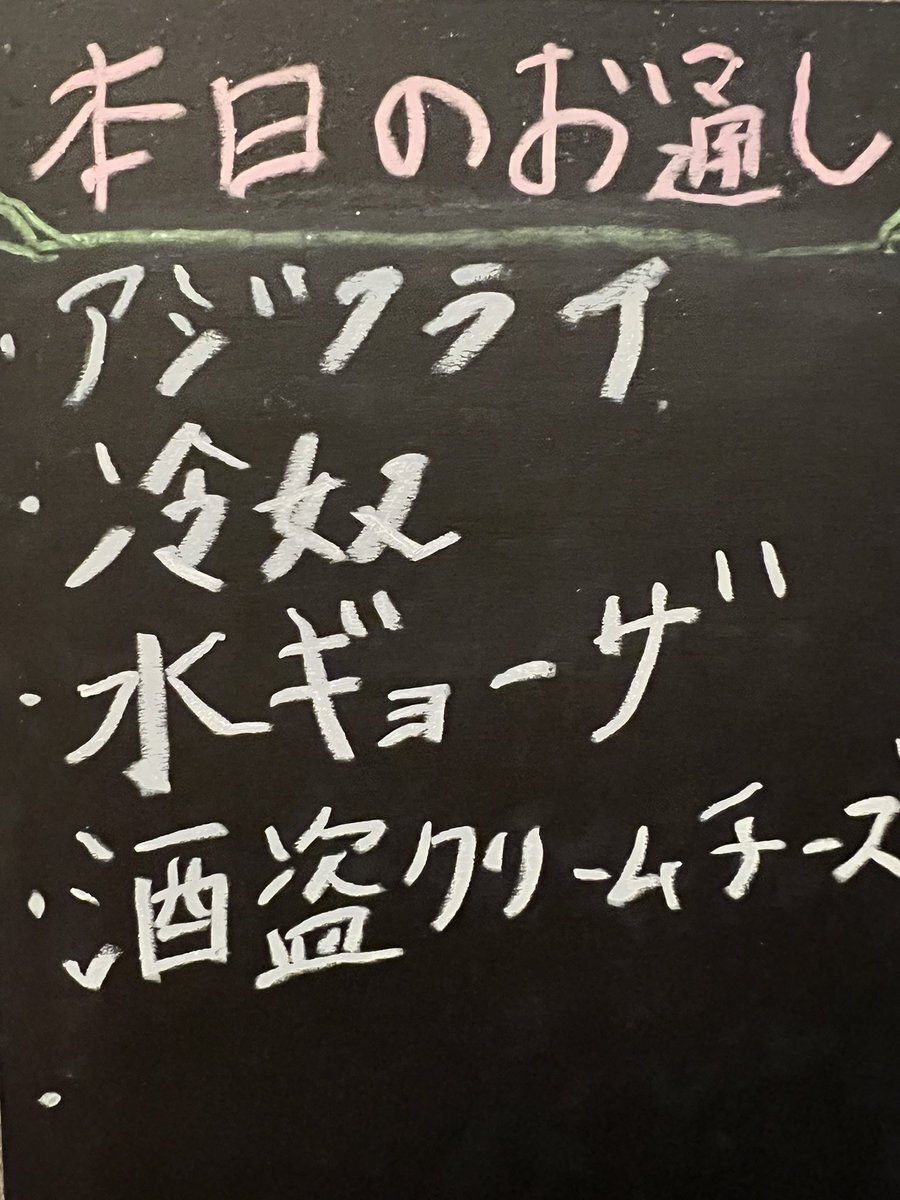 本日のお通し
・アジフライ
・冷奴
・水ギョーザ
・酒盗クリームチーズ
・